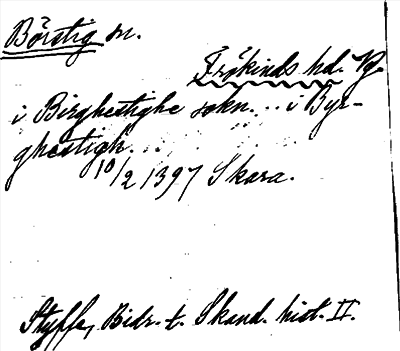 Börstig sn.
Frökinds hd. Vg.
i Birghestighe sokn... i Byr-
ghestigh...
10/2 1397 Skara.
Styffe, Bidr. t. Skand. hist. II.